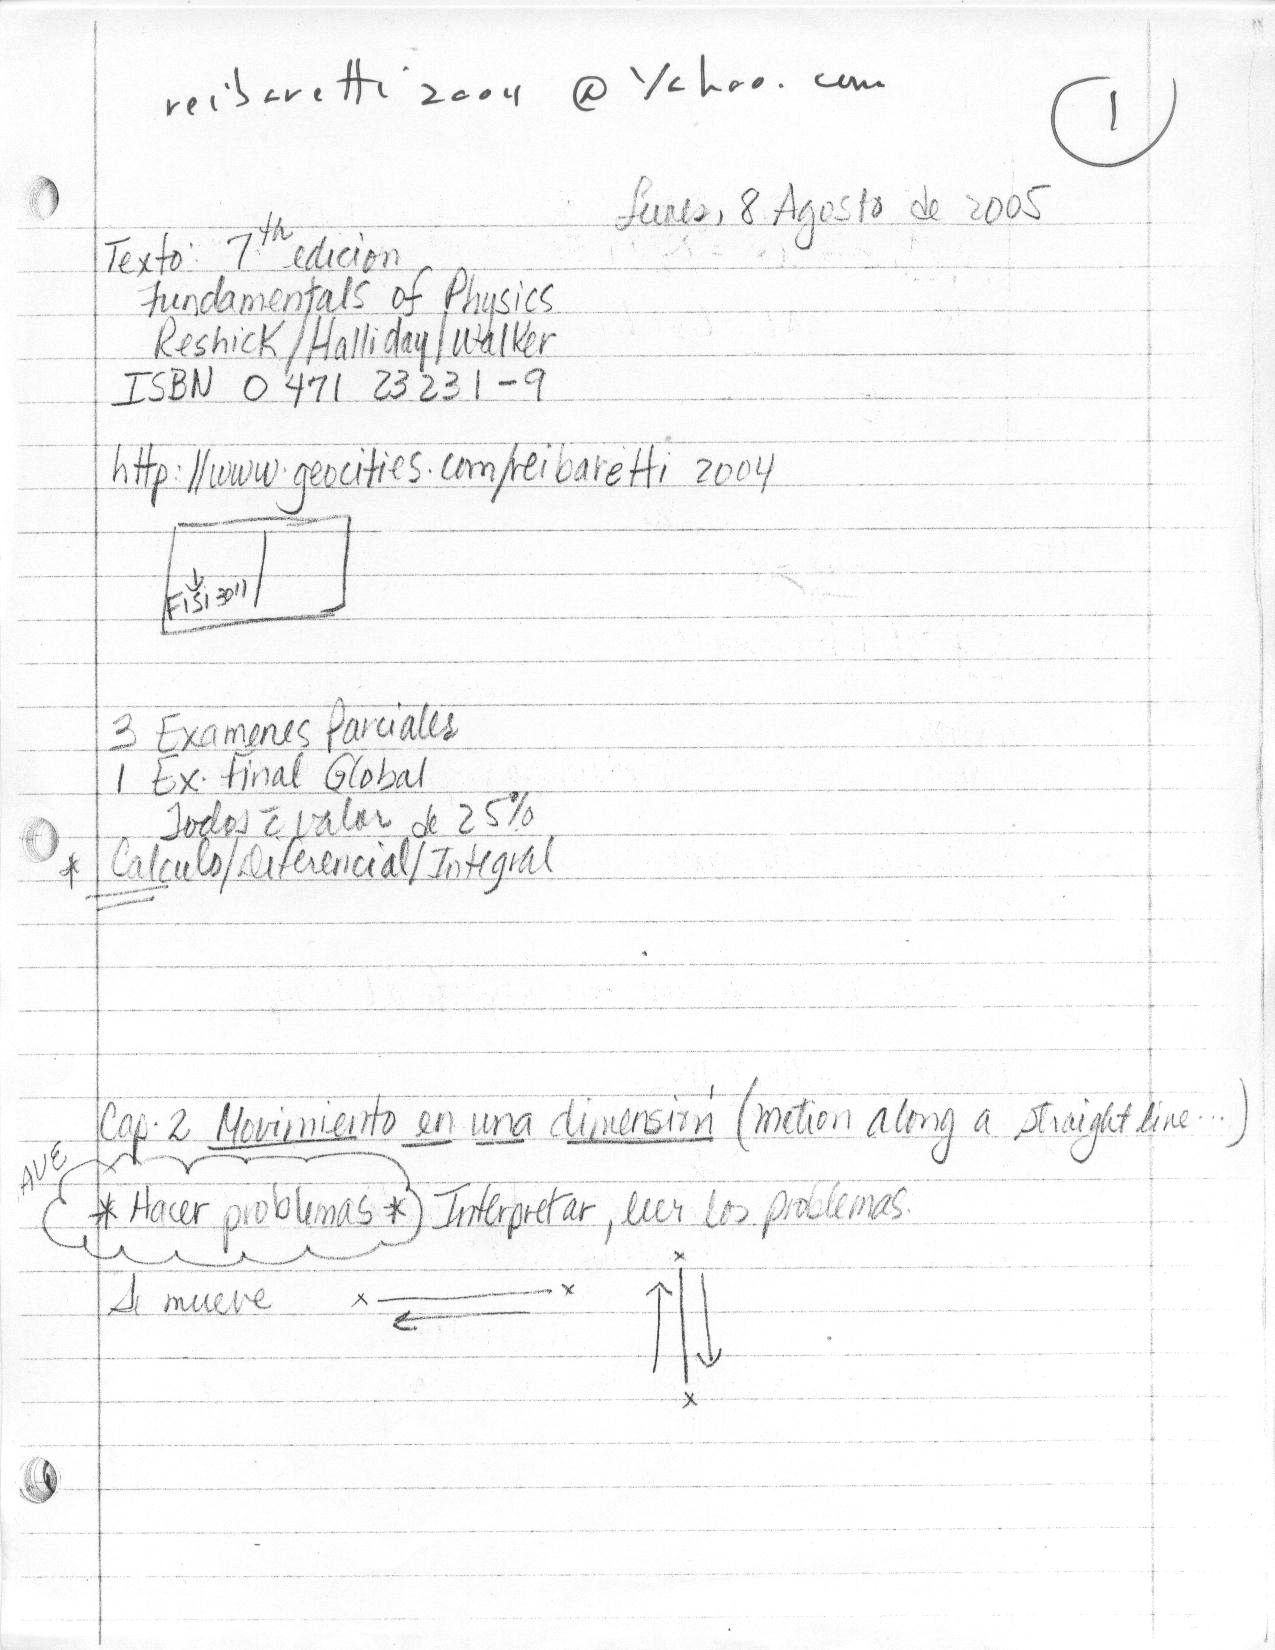 reibaretti2004 @ Yahoo.com
1
Lunes, 8 Agosto de 2005
Texto: 7th edicion
Fundamentals of Physics
Resnick/Halliday/Walker
ISBN 0 471 23231-9
http://www.geocities.com/reibaretti 2004
FISI 3011
3 Examenes Parciales
1 Ex. Final Global
Todos c̄ valor de 25%
* Calculo/Diferencial/Integral
Cap. 2 Movimiento en una dimensión (motion along a straight line...)
AVE
* Hacer problemas * Interpretar, leer los problemas.
Se mueve x x
x
x